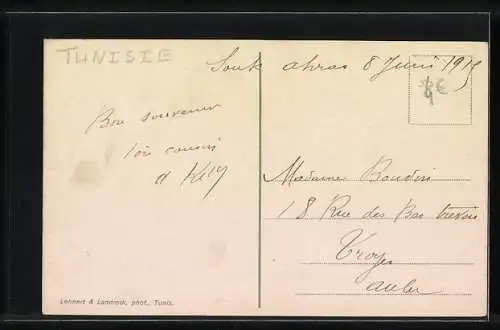 TUNISIE
Souk ahras 8 Juin 1915
8€
Bon souvenir
cousin
Madame Boudin
18 Rue des Bas trevois
Troyes
Aube
Lehnert & Landrock, phot., Tunis.